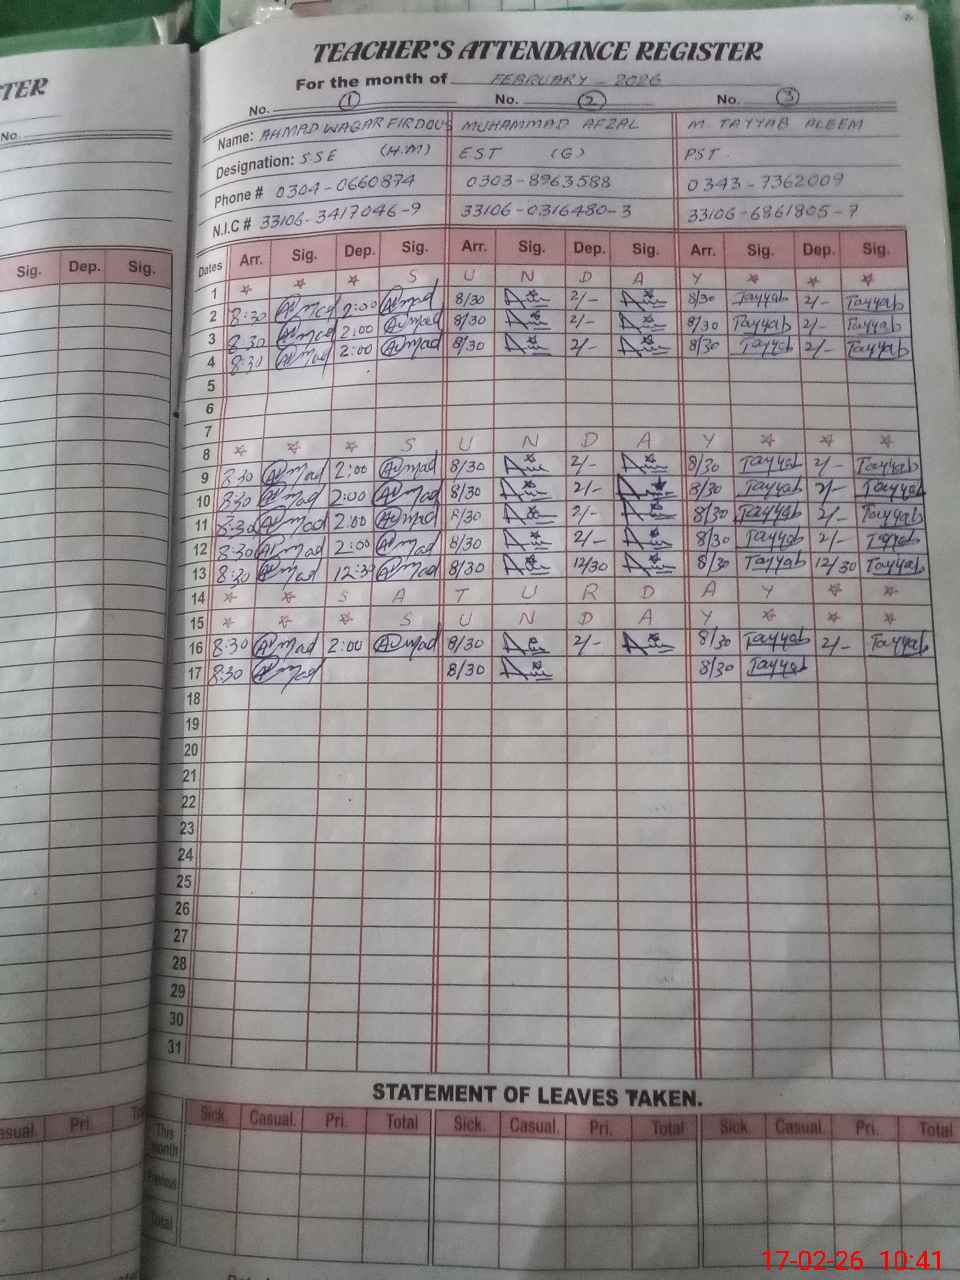 TEACHER'S ATTENDANCE REGISTER
For the month of FEBRUARY - 2026
No. 1 No. 2 No. 3
Name: AHMAD WAQAR FIRDOUS MUHAMMAD AFZAL M. TAYYAB ALEEM
Designation: S.S.E (H.M) EST (G) PST.
Phone # 0304-0660874 0303-8963588 0343-7362009
N.I.C # 33106-3417046-9 33106-0316480-3 33106-6861805-7
Dates Arr. Sig. Dep. Sig. Arr. Sig. Dep. Sig. Arr. Sig. Dep. Sig.
1 * * * S U N D A Y * * *
2 8:30 Ahmad 2:00 Ahmad 8/30 2/- 8/30 Tayyab 2/- Tayyab
3 8:30 Ahmad 2:00 Ahmad 8/30 2/- 8/30 Tayyab 2/- Tayyab
4 8:30 Ahmad 2:00 Ahmad 8/30 2/- 8/30 Tayyab 2/- Tayyab
5
6
7
8 * * * S U N D A Y * * *
9 8:30 Ahmad 2:00 Ahmad 8/30 2/- 8/30 Tayyab 2/- Tayyab
10 8:30 Ahmad 2:00 Ahmad 8/30 2/- 8/30 Tayyab 2/- Tayyab
11 8:30 Ahmad 2:00 Ahmad 8/30 2/- 8/30 Tayyab 2/- Tayyab
12 8:30 Ahmad 2:00 Ahmad 8/30 2/- 8/30 Tayyab 2/- Tayyab
13 8:30 Ahmad 12:30 Ahmad 8/30 12/30 8/30 Tayyab 12/30 Tayyab
14 * * S A T U R D A Y * *
15 * * * S U N D A Y * * *
16 8:30 Ahmad 2:00 Ahmad 8/30 2/- 8/30 Tayyab 2/- Tayyab
17 8:30 Ahmad 8/30 8/30 Tayyab
18
19
20
21
22
23
24
25
26
27
28
29
30
31
STATEMENT OF LEAVES TAKEN.
Sick. Casual. Pri. Total Sick. Casual. Pri. Total Sick. Casual. Pri. Total
This month
Previous
Total
TER
No.
Sig. Dep. Sig.
asual. Pri.
17-02-26 10:41